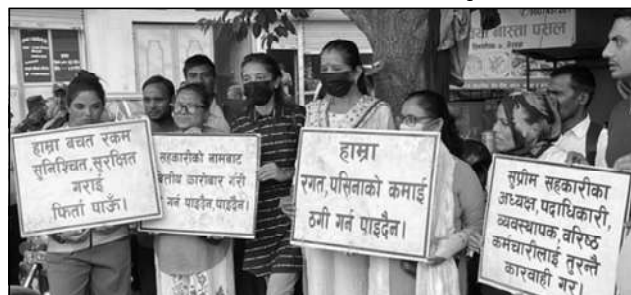 नास्ता पसल
हाम्रा बचत रकम
सुनिश्चित, सुरक्षित
गराई
फिर्ता पाऊँ।
सहकारीको नामबाट
कारोबार गरी
गर्न पाइदैन, पाइदैन।
हाम्रा
रगत, पसिनाको कमाई
ठगी गर्न पाइदैन।
सुप्रीम सहकारीका
अध्यक्ष, पदाधिकारी,
व्यवस्थापक, वरिष्ठ
कर्मचारीलाई तुरन्तै
कारवाही गर।